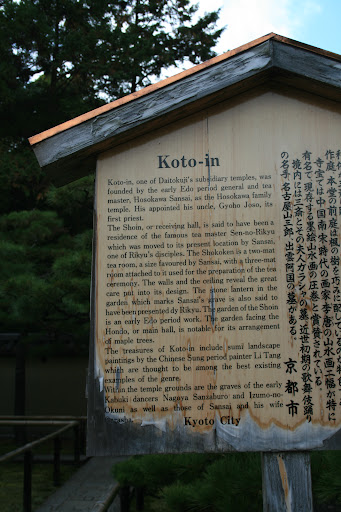 Koto-in
Koto-in, one of Daitokuji's subsidiary temples, was
founded by the early Edo period general and tea
master, Hosokawa Sansai, as the Hosokawa family
temple. His appointed his uncle, Gyoho Joso, its
first priest.
The Shoin, or receiving hall, is said to have been a
residence of the famous tea master Sen-no-Rikyu
which was moved to its present location by Sansai,
one of Rikyu's disciples. The Shokoken is a two-mat
tea room, a size favoured by Sansai, with a three-mat
room attached to it used for the preparation of the tea
ceremony. The walls and the ceiling reveal the great
care put into its design. The stone lantern in the
garden which marks Sansai's grave is also said to
have been presented dy Rikyu. The garden of the Shoin
is an early Edo period work. The garden facing the
Hondo, or main hall, is notable for its arrangement
of maple trees.
The treasures of Koto-in include sumi landscape
paintings by the Chinese Sung period painter Li Tang
which are thought to be among the best existing
examples of the genre.
Within the temple grounds are the graves of the early
Kabuki dancers Nagoya Sanzaburo and Izumo-no-
Okuni as well as those of Sansai and his wife
Kyoto City
作庭、本堂の前庭は楓の樹を巧みに配している
寺宝では中国南宋時代の画家李唐の山水画二幅が特に
有名で、現存する水墨山水画の圧巻と賞讃されている。
境内には三斎とその夫人ガラシャの墓、近世初期の歌舞伎踊
の名手、名古屋山三郎、出雲阿国の墓がある。
京都市